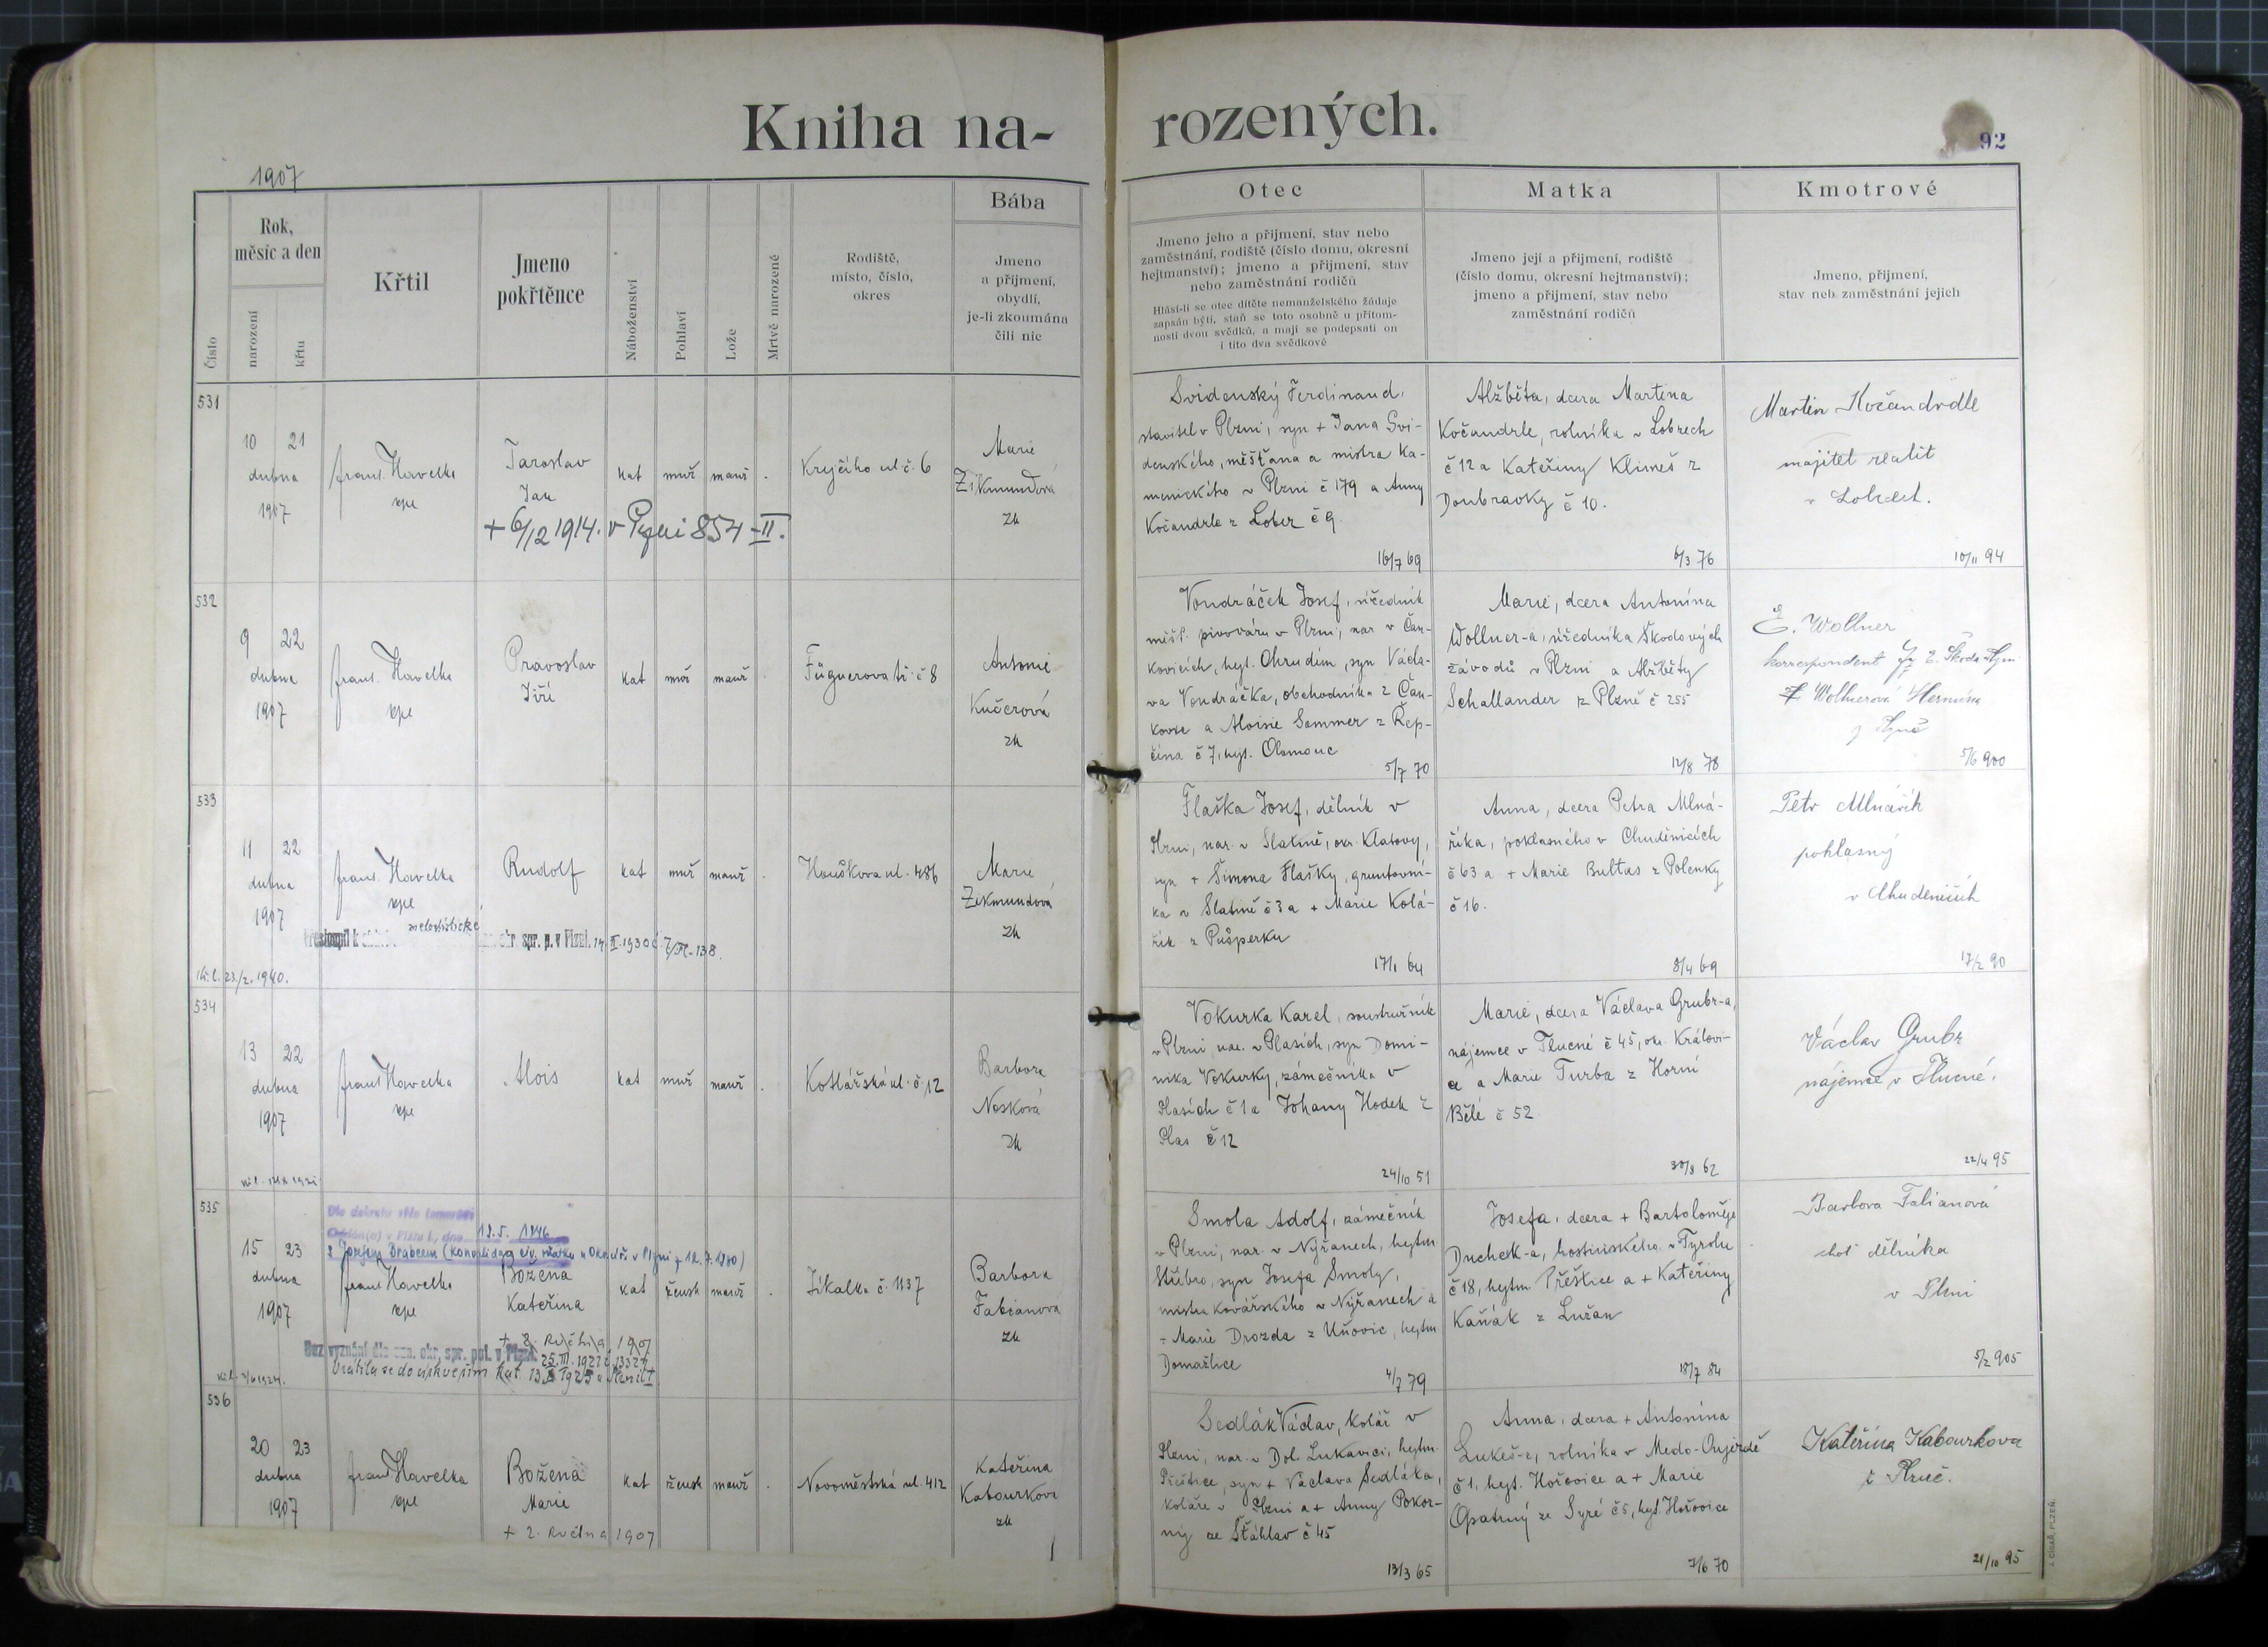 Kniha na-
rozených.
92
1907
Číslo
Rok,
měsíc a den
narození
křtu
Křtil
Jmeno
pokřtěnce
Náboženství
Pohlaví
Lože
Mrtvě narozené
Rodiště,
místo, číslo,
okres
Bába
Jmeno
a přijmení,
obydlí,
je-li zkoumána
čili nic
Otec
Jmeno jeho a přijmení, stav nebo
zaměstnání, rodiště (číslo domu, okresní
hejtmanství); jmeno a přijmení, stav
nebo zaměstnání rodičů
Hlásí-li se otec dítěte nemanželského žádaje
zapsán býti, staň se toto osobně u přítom-
nosti dvou svědků, a mají se podepsati on
i tito dva svědkové
Matka
Jmeno její a přijmení, rodiště
(číslo domu, okresní hejtmanství);
jmeno a přijmení, stav nebo
zaměstnání rodičů
Kmotrové
Jmeno, přijmení,
stav neb zaměstnání jejich
531
10 21
dubna
1907
frant. Havelka
kpe
Jaroslav
Jan
+ 6/12 1914. v Plzni 854-II.
kat
muž
manž
Krejčího ul. č. 6
Marie
Zikmundová
zk
Svidenský Ferdinand,
stavitel v Plzni, syn + Jana Svi-
denského, měšťana a mistra ka-
menického v Plzni č 179 a Anny
Kočandrle z Lobez č 9.
16/7 69
Alžběta, dcera Martina
Kočandrle, rolníka v Lobzech
č 12 a Kateřiny Klimeš z
Doubravky č 10.
6/3 76
Martin Kočandrdle
majitel realit
v Lobzech.
10/11 94
532
9 22
dubna
1907
frant. Havelka
kpe
Pravoslav
Jiří
kat
muž
manž
Fügnerova tř. č 8
Antonie
Kučerová
zk
Vondráček Josef, úředník
měšť. pivováru v Plzni, nar. v Čan-
kovicích, hejt. Chrudim, syn Václa-
va Vondráčka, obchodníka z Čan-
kovic a Aloisie Sommer z Řep-
čína č 7, hejt. Olomouc
5/7 70
Marie, dcera Antonína
Wollner-a, úředníka Škodových
závodů v Plzni a Alžběty
Schallander z Plzně č 255
12/8 78
E. Wollner
korrespondent fy E. Škoda Plzni
Wollnerová Hermína
z Plzně
5/6 900
533
11 22
dubna
1907
frant. Havelka
kpe
Rudolf
kat
muž
manž
Houškova ul. 486
Marie
Zikmundová
zk
okr. spr. p. v Plzni
kř. l. 23/2. 1940.
Flaška Josef, dělník v
Plzni, nar. v Slatině, okr. Klatovy,
syn + Šimona Flašky, gruntovní-
ka v Slatině č 3 a + Marie Kolá-
řík z Pušperku
17/1 64
Anna, dcera Petra Mlná-
říka, poklasného v Chuděnicích
č 63 a + Marie Bultus z Polenky
č 16.
8/4 69
Petr Mlnářík
poklasný
v Chudenicích
17/2 90
534
13 22
dubna
1907
frant Havelka
kpe
Alois
kat
muž
manž
Kotlářská ul. č. 12
Barbora
Nosková
zk
Vokurka Karel, soustružník
v Plzni, nar. v Plasích, syn Domi-
nika Vokurky, zámečníka v
Plasích č 1 a Johany Hodek z
Plas č 12
24/10 51
Marie, dcera Václava Grubr-a,
nájemce v Tlucné č 45, okr. Královi-
ce a Marie Turba z Horní
Bělé č 52
30/8 62
Václav Grubr
nájemce v Tlucné.
22/4 95
535
19. 5. 1946
s Josefem Brabcem (konvalidace civ. sňatku u Okr. úř. v Plzni z 12. 7. 1930)
15 23
dubna
1907
frant Havelka
kpe
Božena
Kateřina
kat
žensk
manž
Jíkalka č. 1137
Barbora
Fabianová
zk
Bez vyznání dle osn. okr. spr. pol. v Plzni 25. III. 1921 č 13327
Vrátila se do církve řím kat.
Smola Adolf, zámečník
v Plzni, nar. v Nýřanech, hejtm.
Stříbro, syn Josefa Smoly,
mistra kovářského v Nýřanech a
+ Marie Drozda z Uňovic, hejtm
Domažlice
4/7 79
Josefa, dcera + Bartoloměje
Duchek-a, hostinského v Tyrolu
č 18, hejtm. Přeštice a + Kateřiny
Kaňák z Lužan
18/7 84
Barbora Fabianová
choť dělníka
v Plzni
5/2 905
536
20 23
dubna
1907
frant Havelka
kpe
Božena
Marie
+ 2. května 1907
kat
žensk
manž
Novoměstská ul. 412
Kateřina
Kabourková
zk
Sedlák Václav, kolář v
Plzni, nar. v Dol. Lukavici, hejtm.
Přeštice, syn + Václava Sedláka,
koláře v Plzni a + Anny Pokor-
ný ze Šťáhlav č 45
13/3 65
Anna, dcera + Antonína
Lukeš-e, rolníka v Medo-Oujezdě
č 1, hejt. Hořovice a + Marie
Opatrný ze Syré č 5, hejt. Hořovice
7/6 70
Kateřina Kabourkova
z Plzně.
21/10 95
J. CÍSAŘ, PLZEŇ.